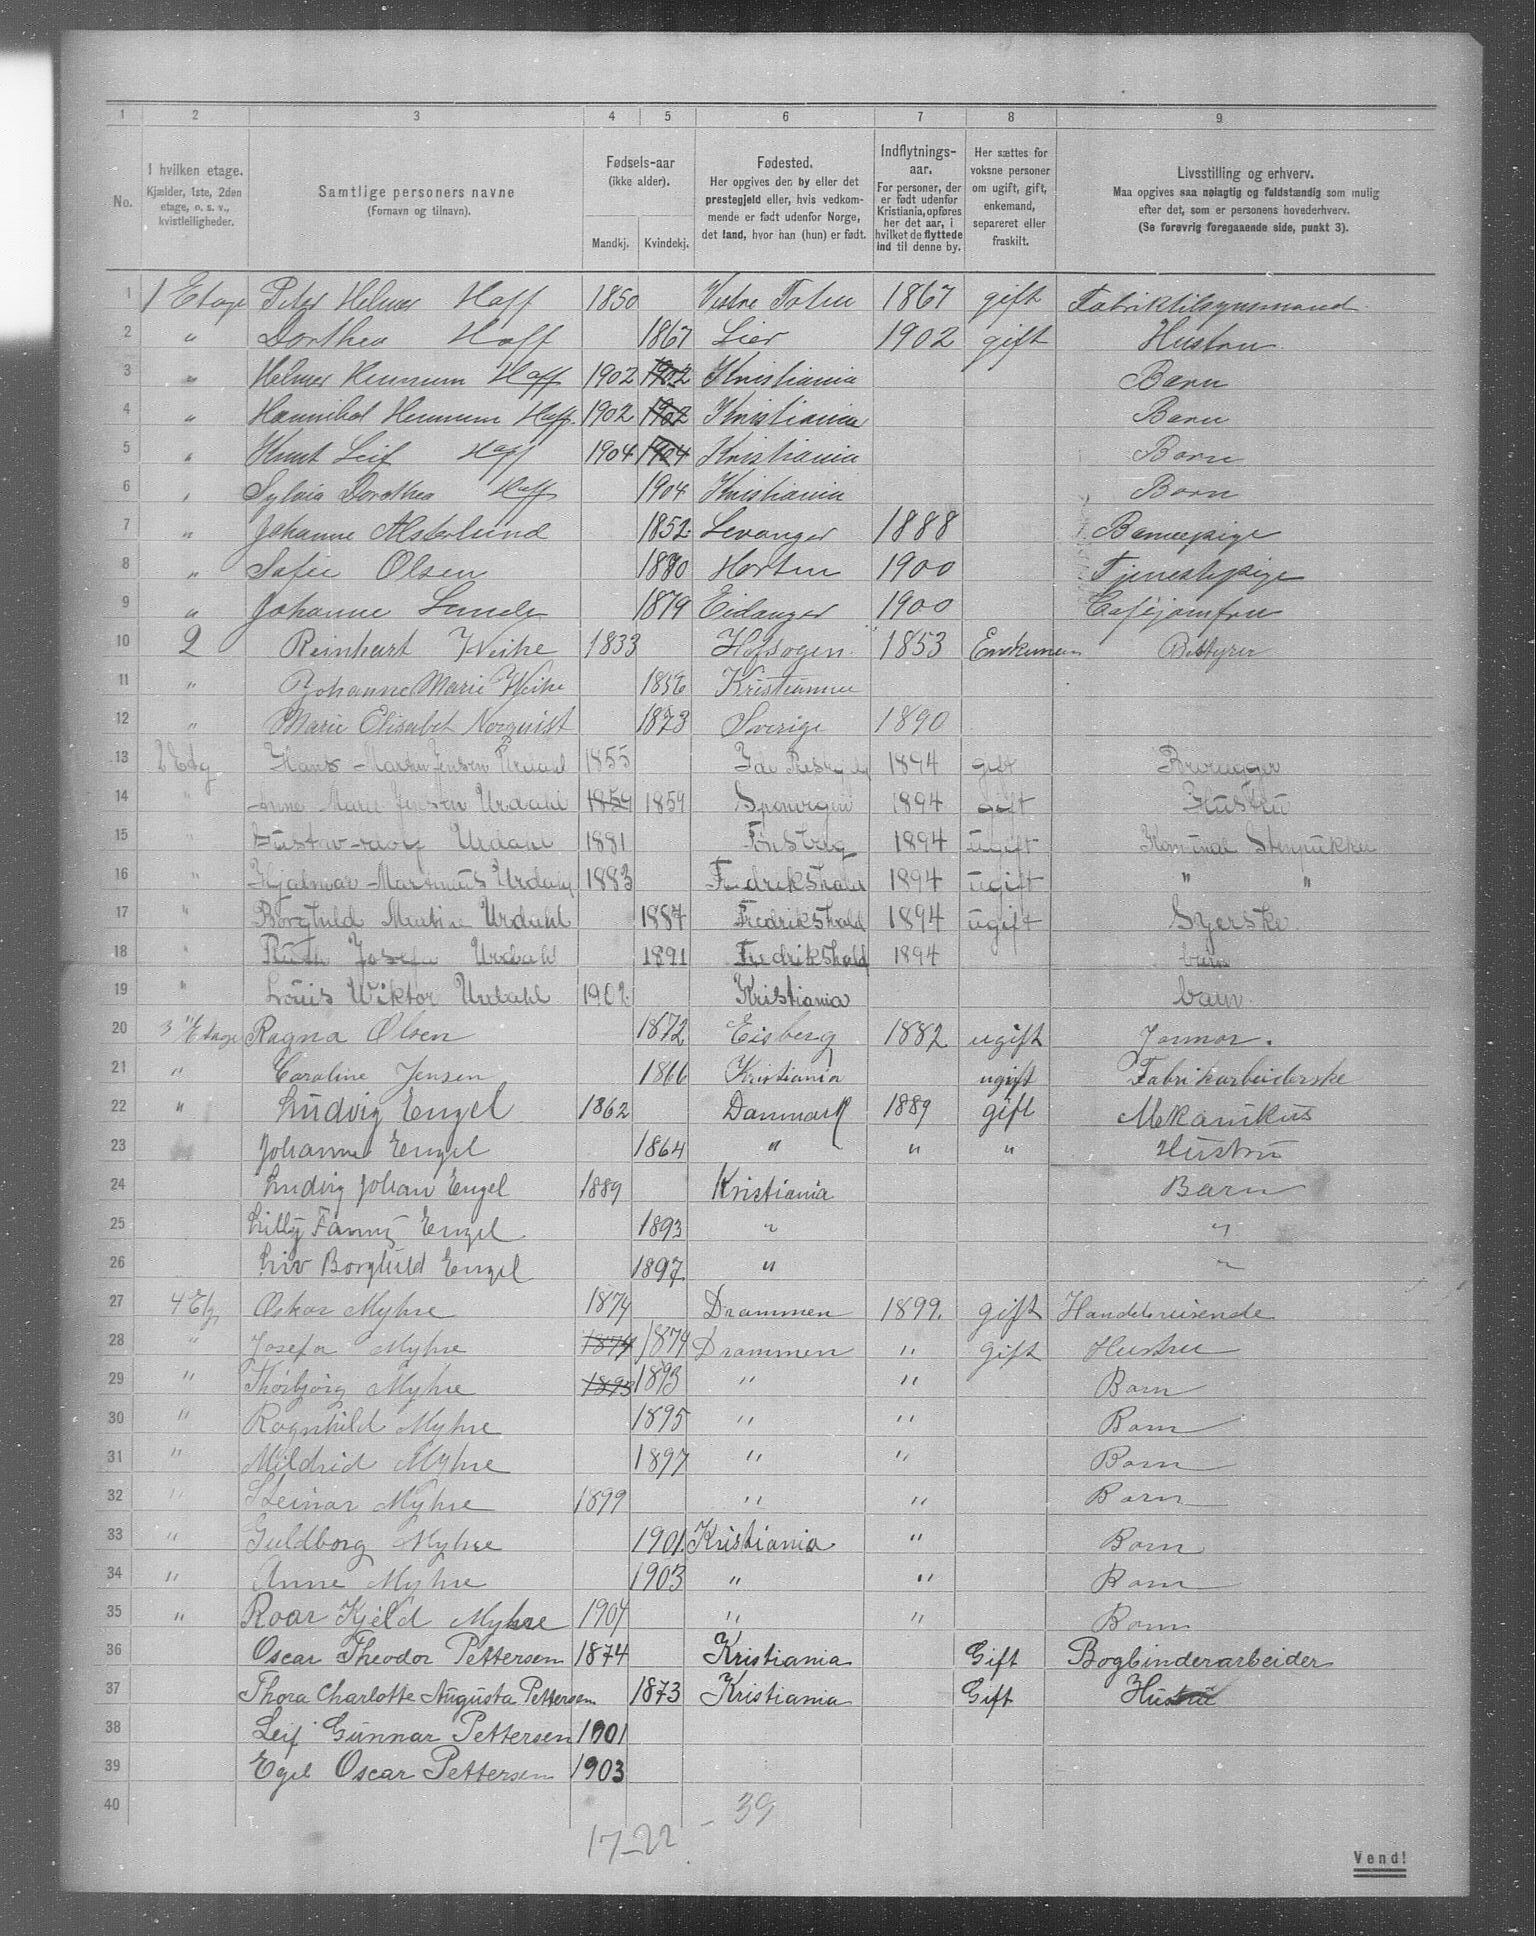 1 2 3 4 5 6 7 8 9
No. I hvilken etage. Kjælder, 1ste, 2den etage, o. s. v., kvistleiligheder. Samtlige personers navne (Fornavn og tilnavn). Fødsels-aar (ikke alder). Mandkj. Kvindekj. Fødested. Her opgives den by eller det prestegjeld eller, hvis vedkommende er født udenfor Norge, det land, hvor han (hun) er født. Indflytnings-aar. For personer, der er født udenfor Kristiania, opføres her det aar, i hvilket de flyttede ind til denne by. Her sættes for voksne personer om ugift, gift, enkemand, separeret eller fraskilt. Livsstilling og erhverv. Maa opgives saa nøiagtig og fuldstændig som mulig efter det, som er personens hovederhverv. (Se forøvrig foregaaende side, punkt 3).
1 1 Etage Peter Helmer Hoff 1850 Vestre Toten 1867 gift Fabriktilsynsmand
2 " Dorthea Hoff 1867 Lier 1902 gift Hustru
3 " Helmer Hoff 1902 1902 Kristiania Barn
4 " Hannibal Hoff 1902 1902 Kristiania Barn
5 " Knut Leif Hoff 1904 1904 Kristiania Barn
6 " Sylvia Dorothea Hoff 1904 Kristiania Barn
7 " Johanne Alsterlund 1852 Levanger 1888 Barnepige
8 " Sofie Olsen 1880 Horten 1900 Tjenestepige
9 " Johanne 1879 Eidanger 1900 Caféjomfru
10 2 Reinhart Weihe 1833 Hofsogen 1853 Enkeman Bestyrer
11 " Johanne Marie Weihe 1856 Kristiania
12 " Marie Elisabet Norquist 1873 Sverige 1890
13 2 Etg Hans Martin Jensen Urdahl 1855 Ide Prestgj 1894 gift Brolægger
14 " Anne Marie Jensen Urdahl 1859 1859 1894 gift Hustru
15 " Gustav Urdahl 1881 1894 ugift Stenpukker
16 " Hjalmar Martinius Urdahl 1883 Fredrikshald 1894 ugift " "
17 " Borghild Martine Urdahl 1887 Fredrikshald 1894 ugift Syerske
18 " Ruth Josefa Urdahl 1891 Fredrikshald 1894 barn
19 " Louis Wiktor Urdahl 1902 Kristiania barn.
20 3 Etage Ragna Olsen 1872 Eisberg 1882 ugift
21 " Caroline Jensen 1866 Kristiania ugift Fabrikarbeiderske
22 " Ludvig Engel 1862 Danmark 1889 gift Mekanikus
23 Johanne Engel 1864 " " " Hustru
24 Ludvig Johan Engel 1889 Kristiania Barn
25 Lilly Fanny Engel 1893 " "
26 Liv Borghild Engel 1897 " "
27 4 Etg Oskar Myhre 1874 Drammen 1899. gift Handelsreisende
28 " Josefa Myhre 1874 1874 Drammen " gift Hustru
29 " Thorbjørg Myhre 1893 1893 " " Barn
30 " Ragnhild Myhre 1895 " " Barn
31 " Mildrid Myhre 1897 " " Barn
32 " Steinar Myhre 1899 " " Barn
33 " Guldborg Myhre 1901. Kristiania " Barn
34 " Anne Myhre 1903 " " Barn
35 " Roar Kjeld Myhre 1904 " " Barn
36 Oscar Theodor Pettersen 1874 Kristiania Gift Bogbinderarbeider
37 Thora Charlotte Augusta Pettersen 1873 Kristiania Gift Hustru
38 Leif Gunnar Pettersen 1901
39 Egil Oscar Pettersen 1903
40
17-22 - 39
Vend!